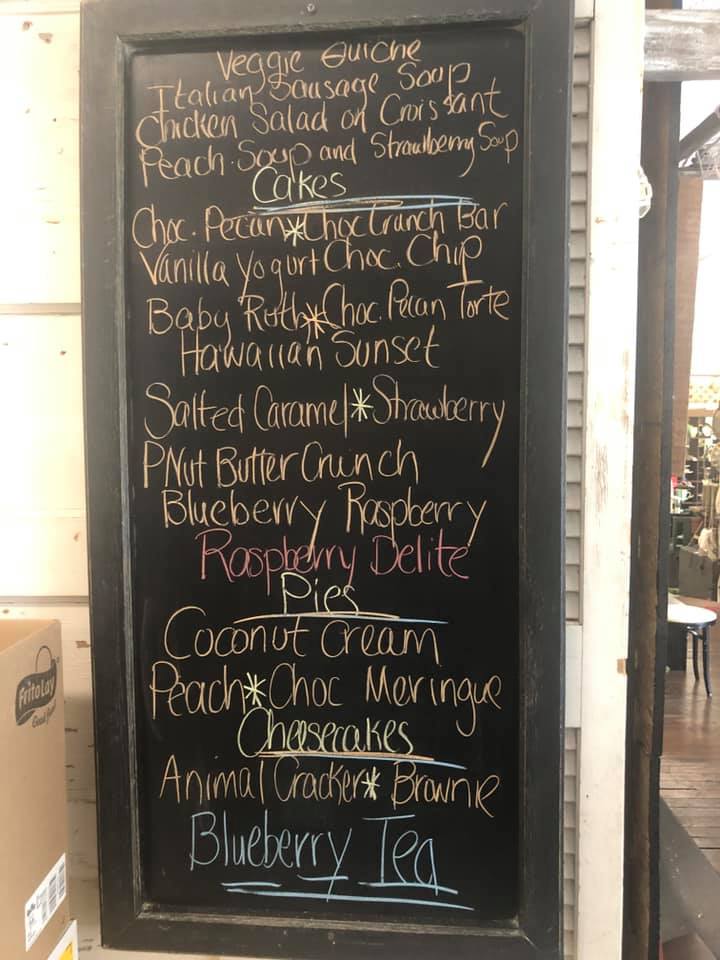 Veggie Quiche
Italian Sausage Soup
Chicken Salad on Croissant
Peach Soup and Strawberry Soup
Cakes
Choc. Pecan * Choc Crunch Bar
Vanilla Yogurt Choc. Chip
Baby Ruth * Choc. Pecan Torte
Hawaiian Sunset
Salted Caramel * Strawberry
PNut Butter Crunch
Blueberry Raspberry
Raspberry Delite
Pies
Coconut Cream
Peach * Choc Meringue
Cheesecakes
Animal Cracker * Brownie
Blueberry Tea
FritoLay